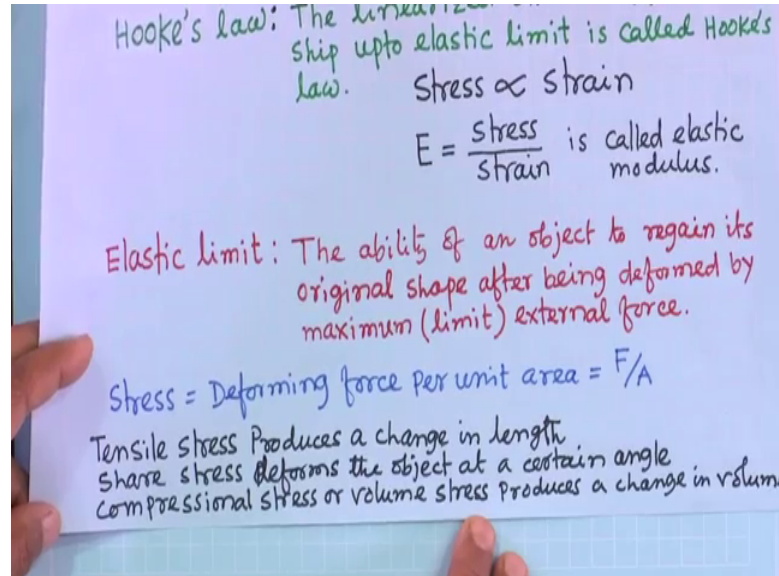 Hooke's law: The
ship upto elastic limit is called Hooke's
law.
Stress ∝ Strain
E = stress/strain is called elastic
modulus.
Elastic limit: The ability of an object to regain its
original shape after being deformed by
maximum (limit) external force.
Stress = Deforming force per unit area = F/A
Tensile stress Produces a change in length
Share stress deforms the object at a certain angle
compressional stress or volume stress produces a change in volum